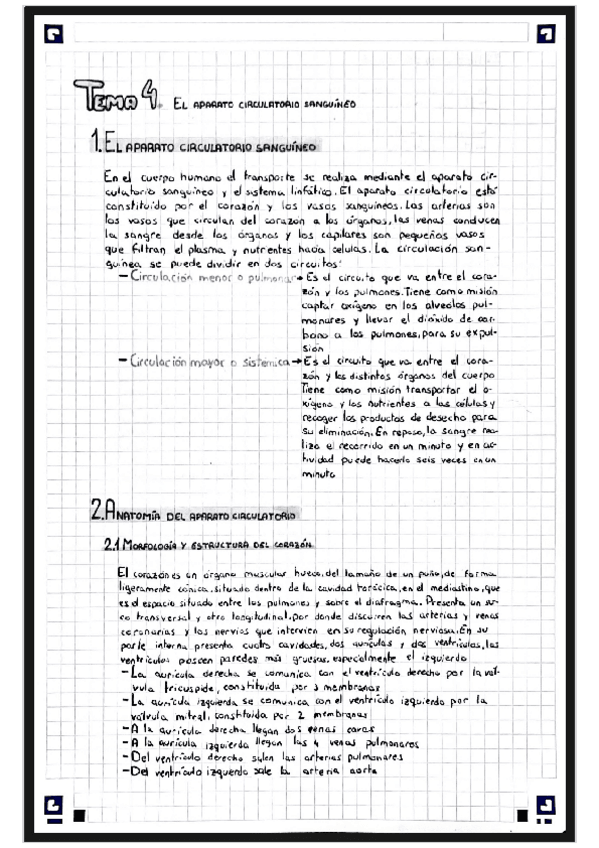 Tema 4. El aparato circulatorio sanguíneo
1. El aparato circulatorio sanguíneo
En el cuerpo humano el transporte se realiza mediante el aparato cir-
culatorio sanguíneo y el sistema linfático. El aparato circulatorio está
constituido por el corazón y los vasos sanguíneos. Las arterias son
los vasos que circulan del corazón a los órganos, las venas conducen
la sangre desde los órganos y los capilares son pequeños vasos
que filtran el plasma y nutrientes hacia celulas. La circulación san-
guínea se puede dividir en dos circuitos:
- Circulación menor o pulmonar → Es el circuito que va entre el cora-
zón y los pulmones. Tiene como misión
captar oxígeno en los alveolos pul-
monares y llevar el dióxido de car-
bono a los pulmones, para su expul-
sión
- Circulación mayor o sistemica → Es el circuito que va entre el cora-
zón y los distintos órganos del cuerpo
Tiene como misión transportar el o-
xígeno y los nutrientes a las células y
recoger los productos de desecho para
su eliminación. En reposo, la sangre rea-
liza el recorrido en un minuto y en ac-
tividad puede hacerlo seis veces en un
minuto
2. Anatomía del aparato circulatorio
2.1 Morfología y estructura del corazón
El corazón es un órgano muscular hueco, del tamaño de un puño, de forma
ligeramente cónica, situado dentro de la cavidad torácica, en el mediastino, que
es el espacio situado entre los pulmones y sobre el diafragma. Presenta un sur-
co transversal y otro longitudinal, por donde discurren las arterias y venas
coronarias y los nervios que intervien en su regulación nerviosa. En su
parte interna presenta cuatro cavidades, dos aurículas y dos ventrículos, los
ventrículos poseen paredes más gruesas, especialmente el izquierdo
- La aurícula derecha se comunica con el ventrículo derecho por la vál-
vula tricuspide, constituida por 3 membranas
- La aurícula izquierda se comunica con el ventrículo izquierdo por la
válvula mitral, constituida por 2 membranas
- A la aurícula derecha llegan dos venas cavas
- A la aurícula izquierda llegan las 4 venas pulmonares
- Del ventrículo derecho salen las arterias pulmonares
- Del ventrículo izquierdo sale la arteria aorta